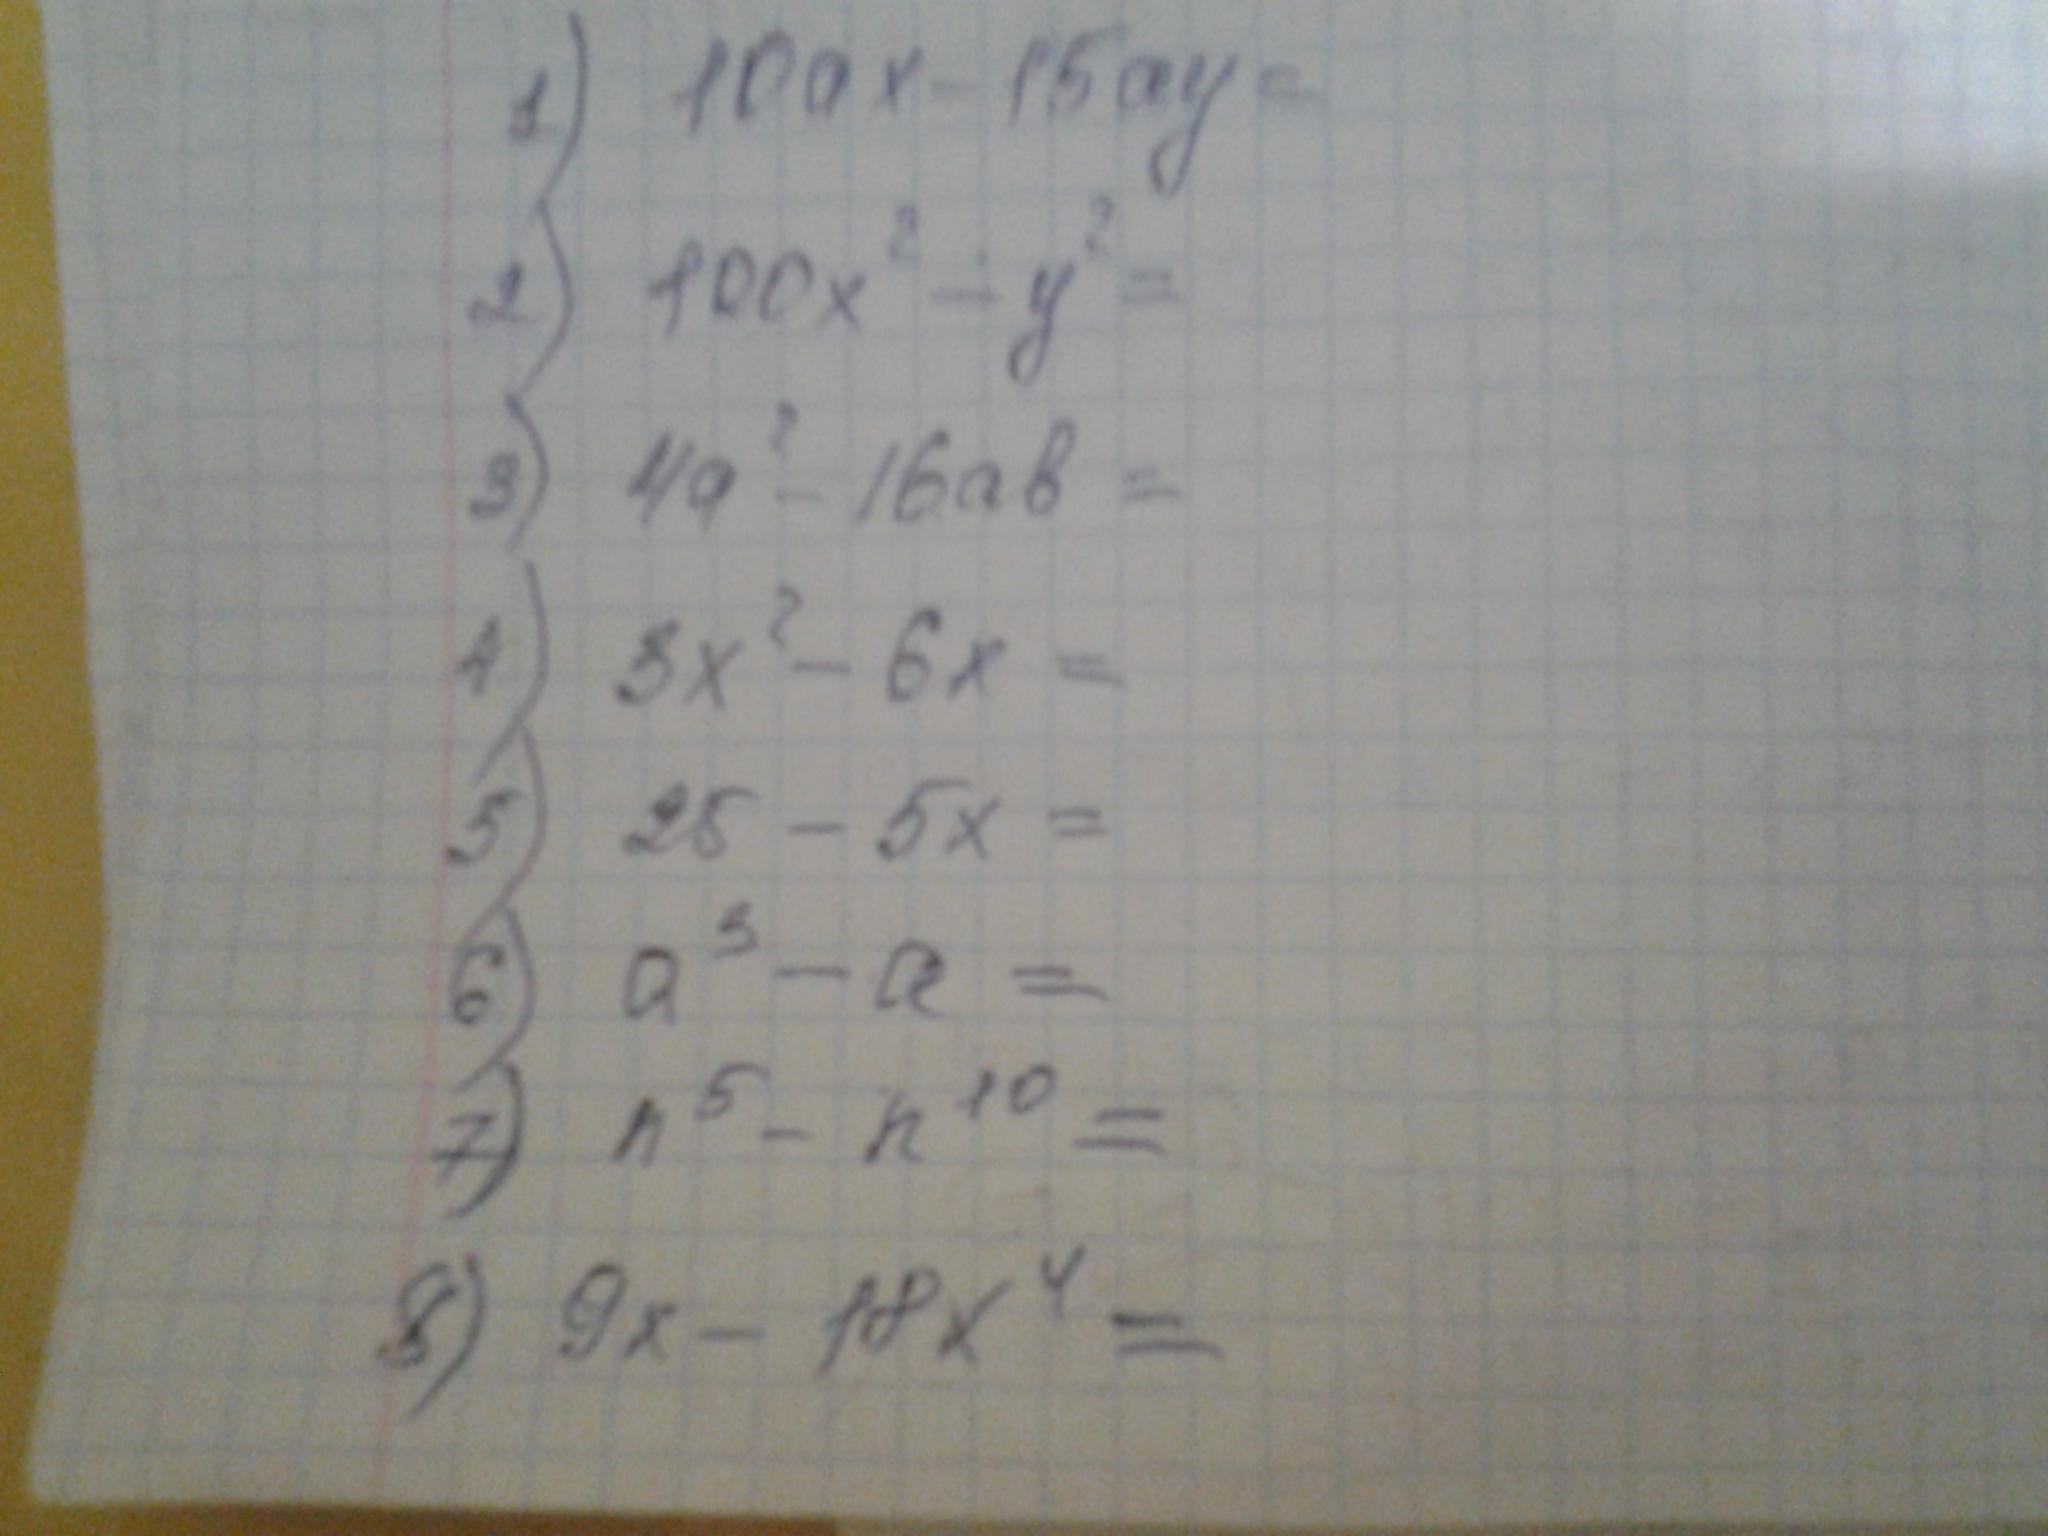 1) 10ax - 15ay =
2) 100x² - y² =
3) 4a² - 16ab =
4) 3x² - 6x =
5) 25 - 5x =
6) a³ - a =
7) n⁵ - n¹⁰ =
8) 9x - 18x⁴ =